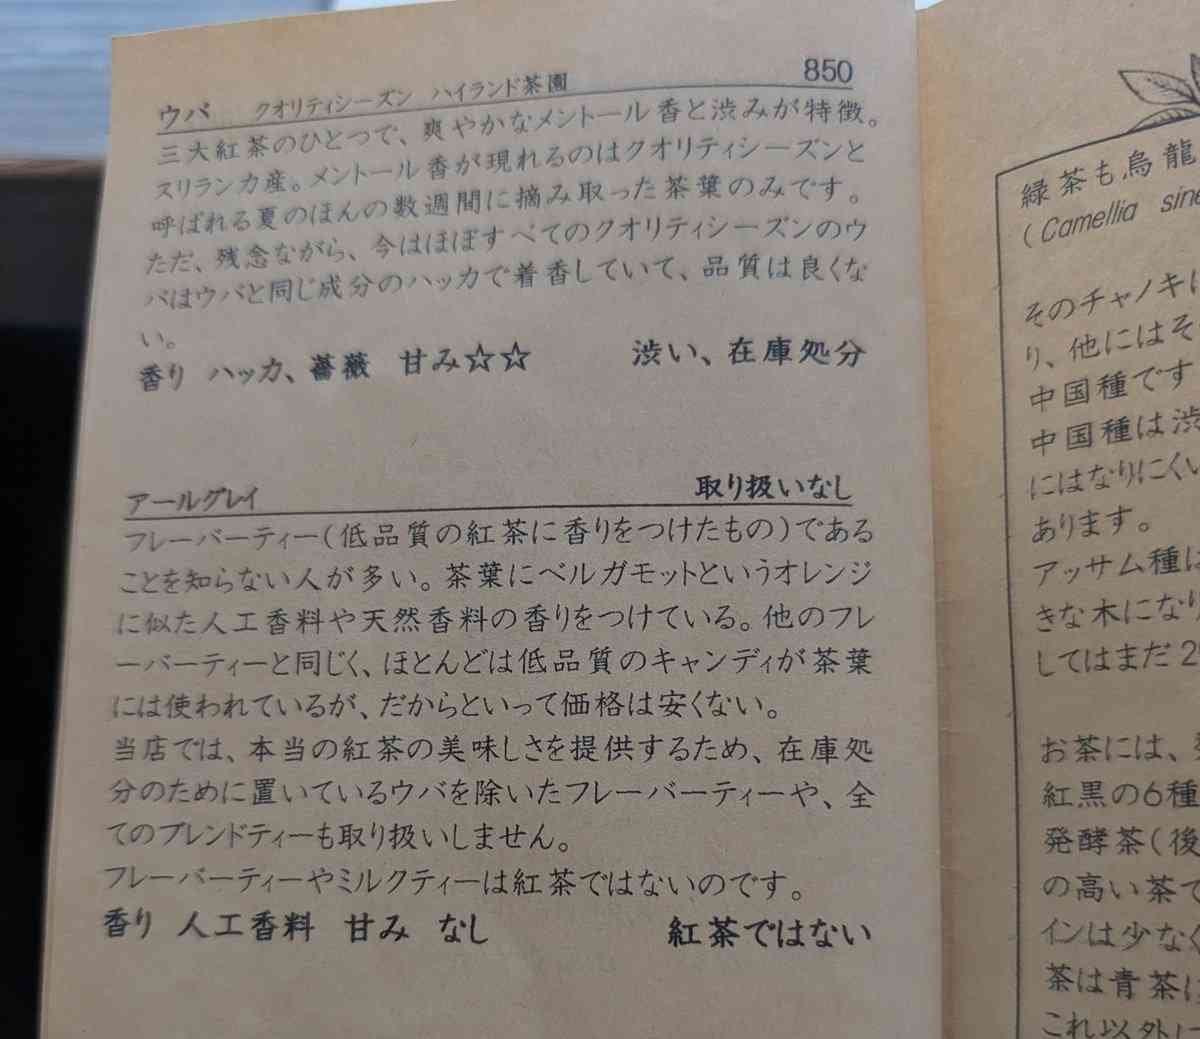 ウバ　クオリティシーズン　ハイランド茶園　850
三大紅茶のひとつで、爽やかなメントール香と渋みが特徴。
スリランカ産。メントール香が現れるのはクオリティシーズンと
呼ばれる夏のほんの数週間に摘み取った茶葉のみです。
ただ、残念ながら、今はほぼすべてのクオリティシーズンのウ
バはウバと同じ成分のハッカで着香していて、品質は良くな
い。
香り　ハッカ、薔薇　甘み☆☆　渋い、在庫処分
アールグレイ　取り扱いなし
フレーバーティー(低品質の紅茶に香りをつけたもの)である
ことを知らない人が多い。茶葉にベルガモットというオレンジ
に似た人工香料や天然香料の香りをつけている。他のフレ
ーバーティーと同じく、ほとんどは低品質のキャンディが茶葉
には使われているが、だからといって価格は安くない。
当店では、本当の紅茶の美味しさを提供するため、在庫処
分のために置いているウバを除いたフレーバーティーや、全
てのブレンドティーも取り扱いしません。
フレーバーティーやミルクティーは紅茶ではないのです。
香り　人工香料　甘み　なし　紅茶ではない
緑茶も、烏龍
(Camellia sine
そのチャノキに
り、他にはそ
中国種です
中国種は渋
にはなりにくい
あります。
アッサム種は
きな木になり
してはまだ2
お茶には、
紅黒の6種
発酵茶(後
の高い茶で
インは少なく
茶は青茶に
これ以外に